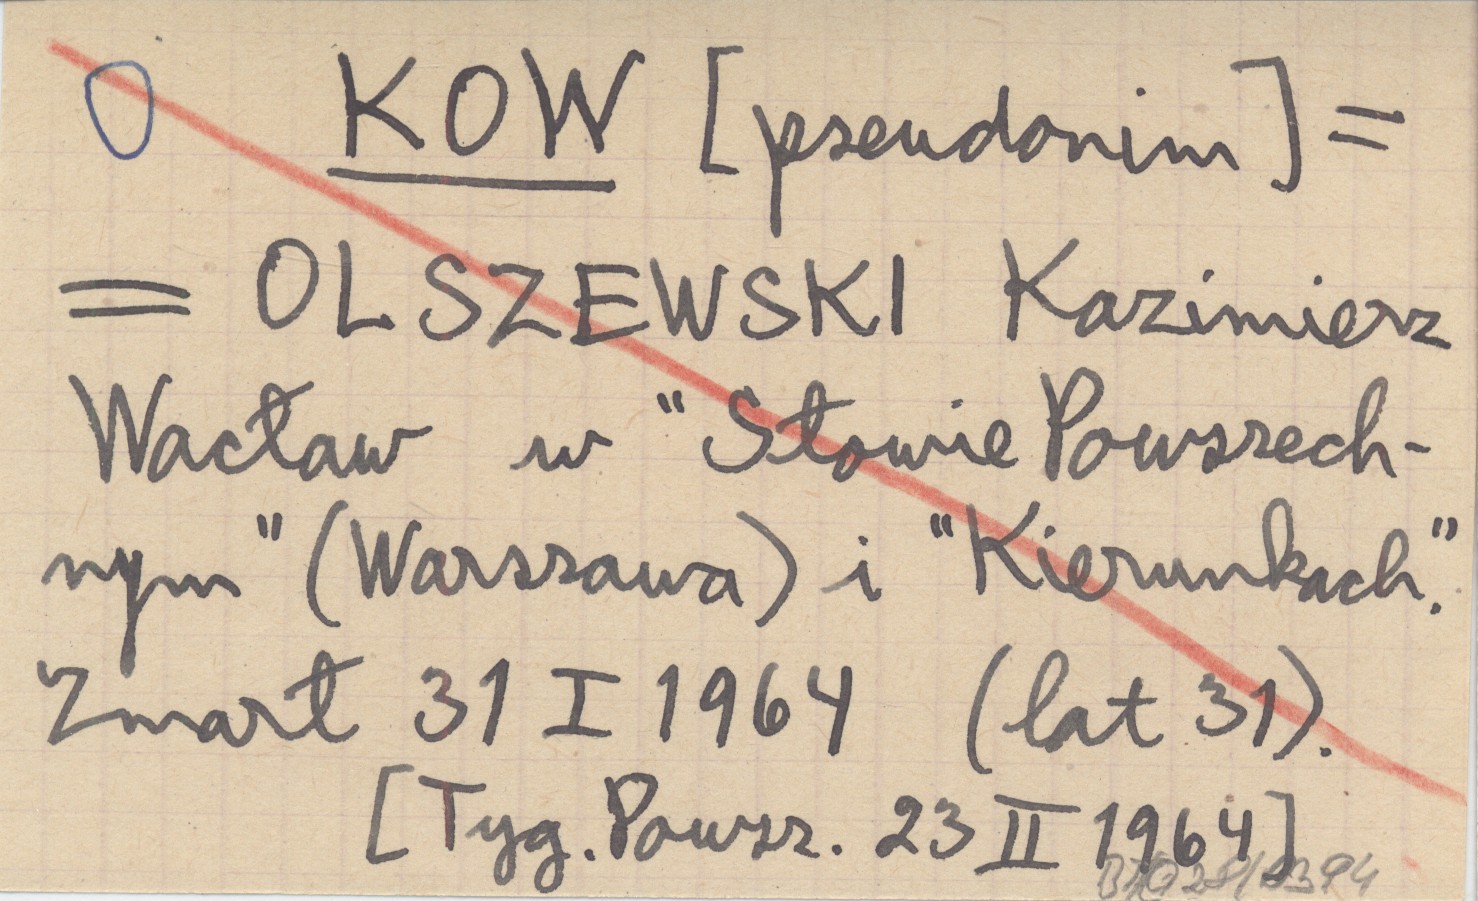 O KOW [pseudonim] =
= OLSZEWSKI Kazimierz
Wacław w "Słowie Powszech-
nym" (Warszawa) i "Kierunkach".
Zmarł 31 I 1964 (lat 31).
[Tyg. Powsz. 23 II 1964]